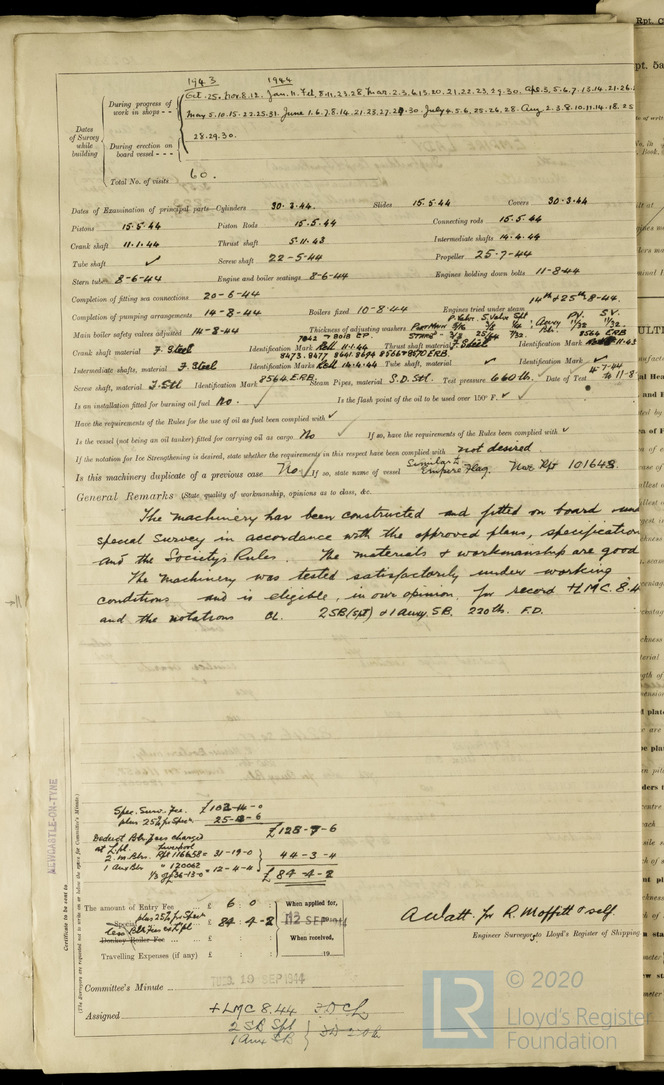 1943 1944
Dates of Survey while building
During progress of work in shops - - Oct. 25. Nov. 8.12. Jan. 11. Feb. 8.11.23.28 Mar. 2.3.6.13.20.21.22.23.29.30. Apl. 3.5.6.7.13.14.21.26.
During erection on board vessel - - - May 5.10.15.22.25.31. June 1.6.7.8.14.21.23.27.29.30. July 4.5.6.25.26.28. Aug 2.3.8.10.11.14.18.25
28.29.30.
Total No. of visits 60.
Dates of Examination of principal parts—Cylinders 30.3.44. Slides 15.5.44 Covers 30.3.44
Pistons 15.5.44 Piston Rods 15.5.44 Connecting rods 15.5.44
Crank shaft 11.1.44 Thrust shaft 5.11.43 Intermediate shafts 14.4.44
Tube shaft ✓ Screw shaft 22-5-44 Propeller 25-7-44
Stern tube 8-6-44 Engine and boiler seatings 8-6-44 Engines holding down bolts 11-8-44
Completion of fitting sea connections 20-6-44
Completion of pumping arrangements 14-8-44 Boilers fixed 10-8-44 Engines tried under steam 14th & 25th 8-44.
Main boiler safety valves adjusted 14-8-44 Thickness of adjusting washers
Crank shaft material F. Steel Identification Mark Thrust shaft material F. Steel Identification Mark
Intermediate shafts, material F. Steel Identification Marks 14.4.44 Tube shaft, material ✓ Identification Mark ✓
Screw shaft, material F. Stl Identification Mark 8564 E.R.B. Steam Pipes, material S.D. Stl. Test pressure 660 lb. Date of Test
Is an installation fitted for burning oil fuel No. Is the flash point of the oil to be used over 150° F. ✓
Have the requirements of the Rules for the use of oil as fuel been complied with ✓
Is the vessel (not being an oil tanker) fitted for carrying oil as cargo. No If so, have the requirements of the Rules been complied with ✓
If the notation for Ice Strengthening is desired, state whether the requirements in this respect have been complied with not desired
Is this machinery duplicate of a previous case No If so, state name of vessel Similar to Empire Flag. Nwc Rpt 101643.
General Remarks (State quality of workmanship, opinions as to class, &c.
The machinery has been constructed and fitted on board
special Survey in accordance with the approved plans, specification
and the Society's Rules. The materials & workmanship are good
The machinery was tested satisfactorily under working
conditions and is eligible, in our opinion, for record +LMC. 8.4
and the notations OL. 2SB (spt) & 1 Auxy. S.B. 220 lb. F.D.
NEWCASTLE-ON-TYNE
Certificate to be sent to
(The Surveyors are requested not to write on or below the space for Committee's Minute.)
Spec. Surv. Fee. £102-14-0
plus 25% for Spec 25-13-6
£128-7-6
Deduct Blr Fees charged
at L'pl. Liverpool
2. m. Blrs. Rpt 116658 = 31-19-0
1 Aux Blr " 120062
1/3 of 36-13-0 = 12-4-4
44-3-4
£84-4-2
The amount of Entry Fee .. £ 6 : 0 : When applied for,
Special plus 25% for Spec £ 84 . 4 - 2 12 SEP 1944
less Blr Fees at L'pl
Donkey Boiler Fee ... £ : : When received,
Travelling Expenses (if any) £ : : 19
A Watt. for R. Moffitt & self.
Engineer Surveyors to Lloyd's Register of Shipping
Committee's Minute TUES. 19 SEP 1944
Assigned + LMC 8.44 F.D. CL
2 SB Spt
1 Aux SB
© 2020
LR
Lloyd's Register
Foundation